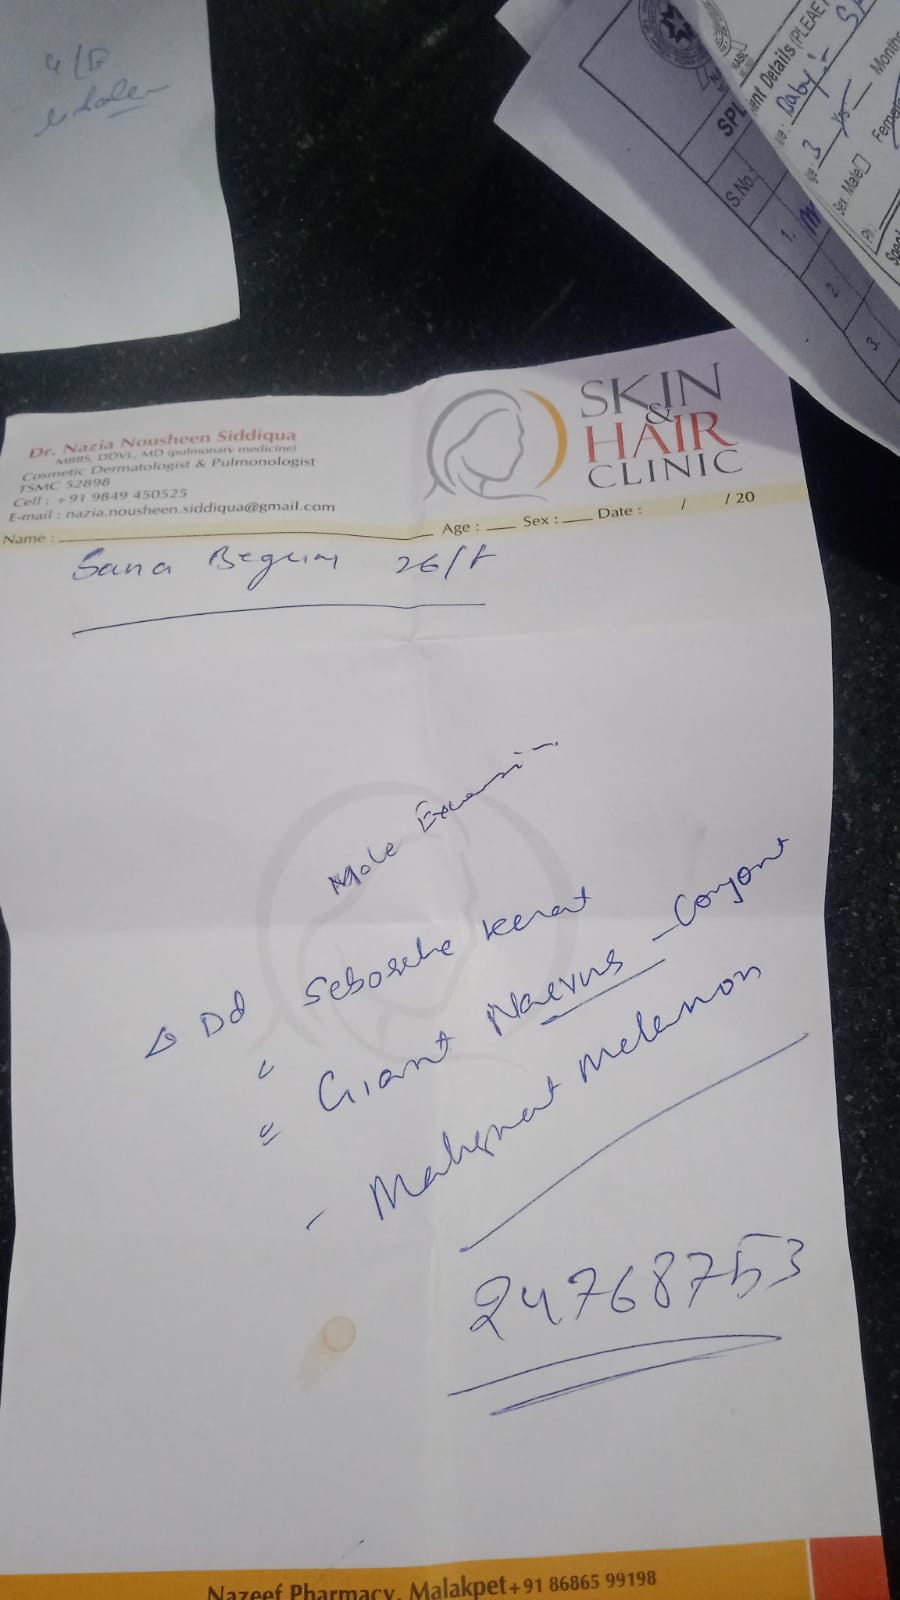 4/F
SPL
S.No.
1.
2.
3.
ent Details (PLEAE
Baby :-
3 Yrs Months
Sex : Male
Dr. Nazia Nousheen Siddiqua
MBBS, DDVL, MD (pulmonary medicine)
Cosmetic Dermatologist & Pulmonologist
TSMC 52898
Cell : +91 9849 450525
E-mail : nazia.nousheen.siddiqua@gmail.com
SKIN
&
HAIR
CLINIC
Name : Age : Sex : Date : / / 20
Sana Begum 26/F
Mole Excersion
Δ Dd Seborche Kerat
" Giant Naevus - Conyont
- Malignat Melanon
24768753
Nazeef Pharmacy, Malakpet +91 86865 99198